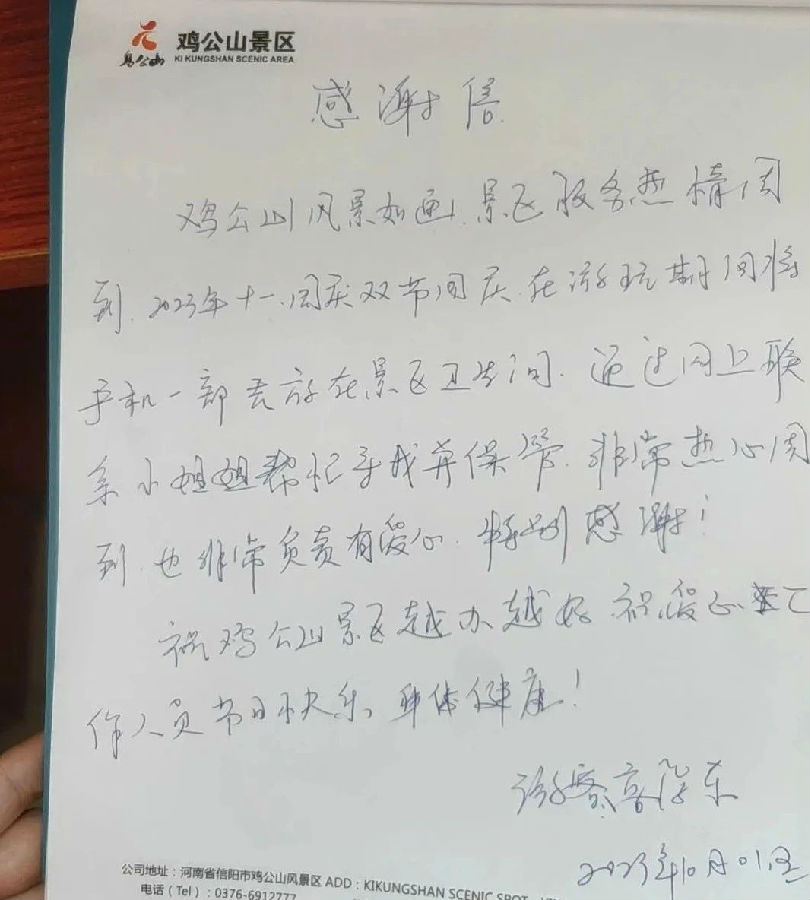 鸡公山
鸡公山景区
KI KUNGSHAN SCENIC AREA
感谢信
鸡公山风景如画,景区服务热情周
到.2023年十一.国庆双节国庆.在游玩期间将
手机一部丢放在景区卫生间.通过网上联
系小姐姐帮忙寻找并保管.非常热心周
到.也非常负责有爱心.特别感谢!
祝鸡公山景区越办越好祝爱心工
作人员节日快乐,身体健康!
游客高
2023年10月01日
公司地址:河南省信阳市鸡公山风景区 ADD:KIKUNGSHAN SCENIC SPOT
电话(Tel):0376-6912777